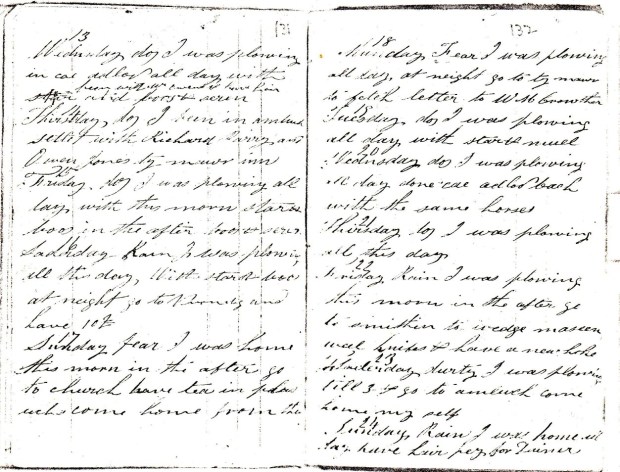 131
13
Wednesday doy I was plowing
in cae adlod all day with
and boost seren
Thirsday doy I been in amluch
sellt with Richard Parry and
Owen Jones ty mawr inn
Friday doy I was plowing all
day with this morn star &
boos in the after boos & seren
Saderday Rain I was plowing
all this day, With star & boos
at neight go to and
have 10t
17
Sunday fear I was home
this morn in the after go
to church have tea in plas
uch come home from the
132
18
Munday Fear I was plowing
all day, at neight go to ty mawr
to fetch letter to W M Crowther
19
Tuesday doy I was plowing
all day with star & muel
20
Wednesday doy I was plowing
all day done cae adlod bach
with the same horses
21
Thirsday doy I was plowing
all this day
22
Friday Rain I was plowing
this morn in the after go
to smithin to wedge
knifes & have a new
23
Saderday durty I was plowing
till 3 & go to amluch come
home my self
24
Sunday Rain I was home all
day have for Diner